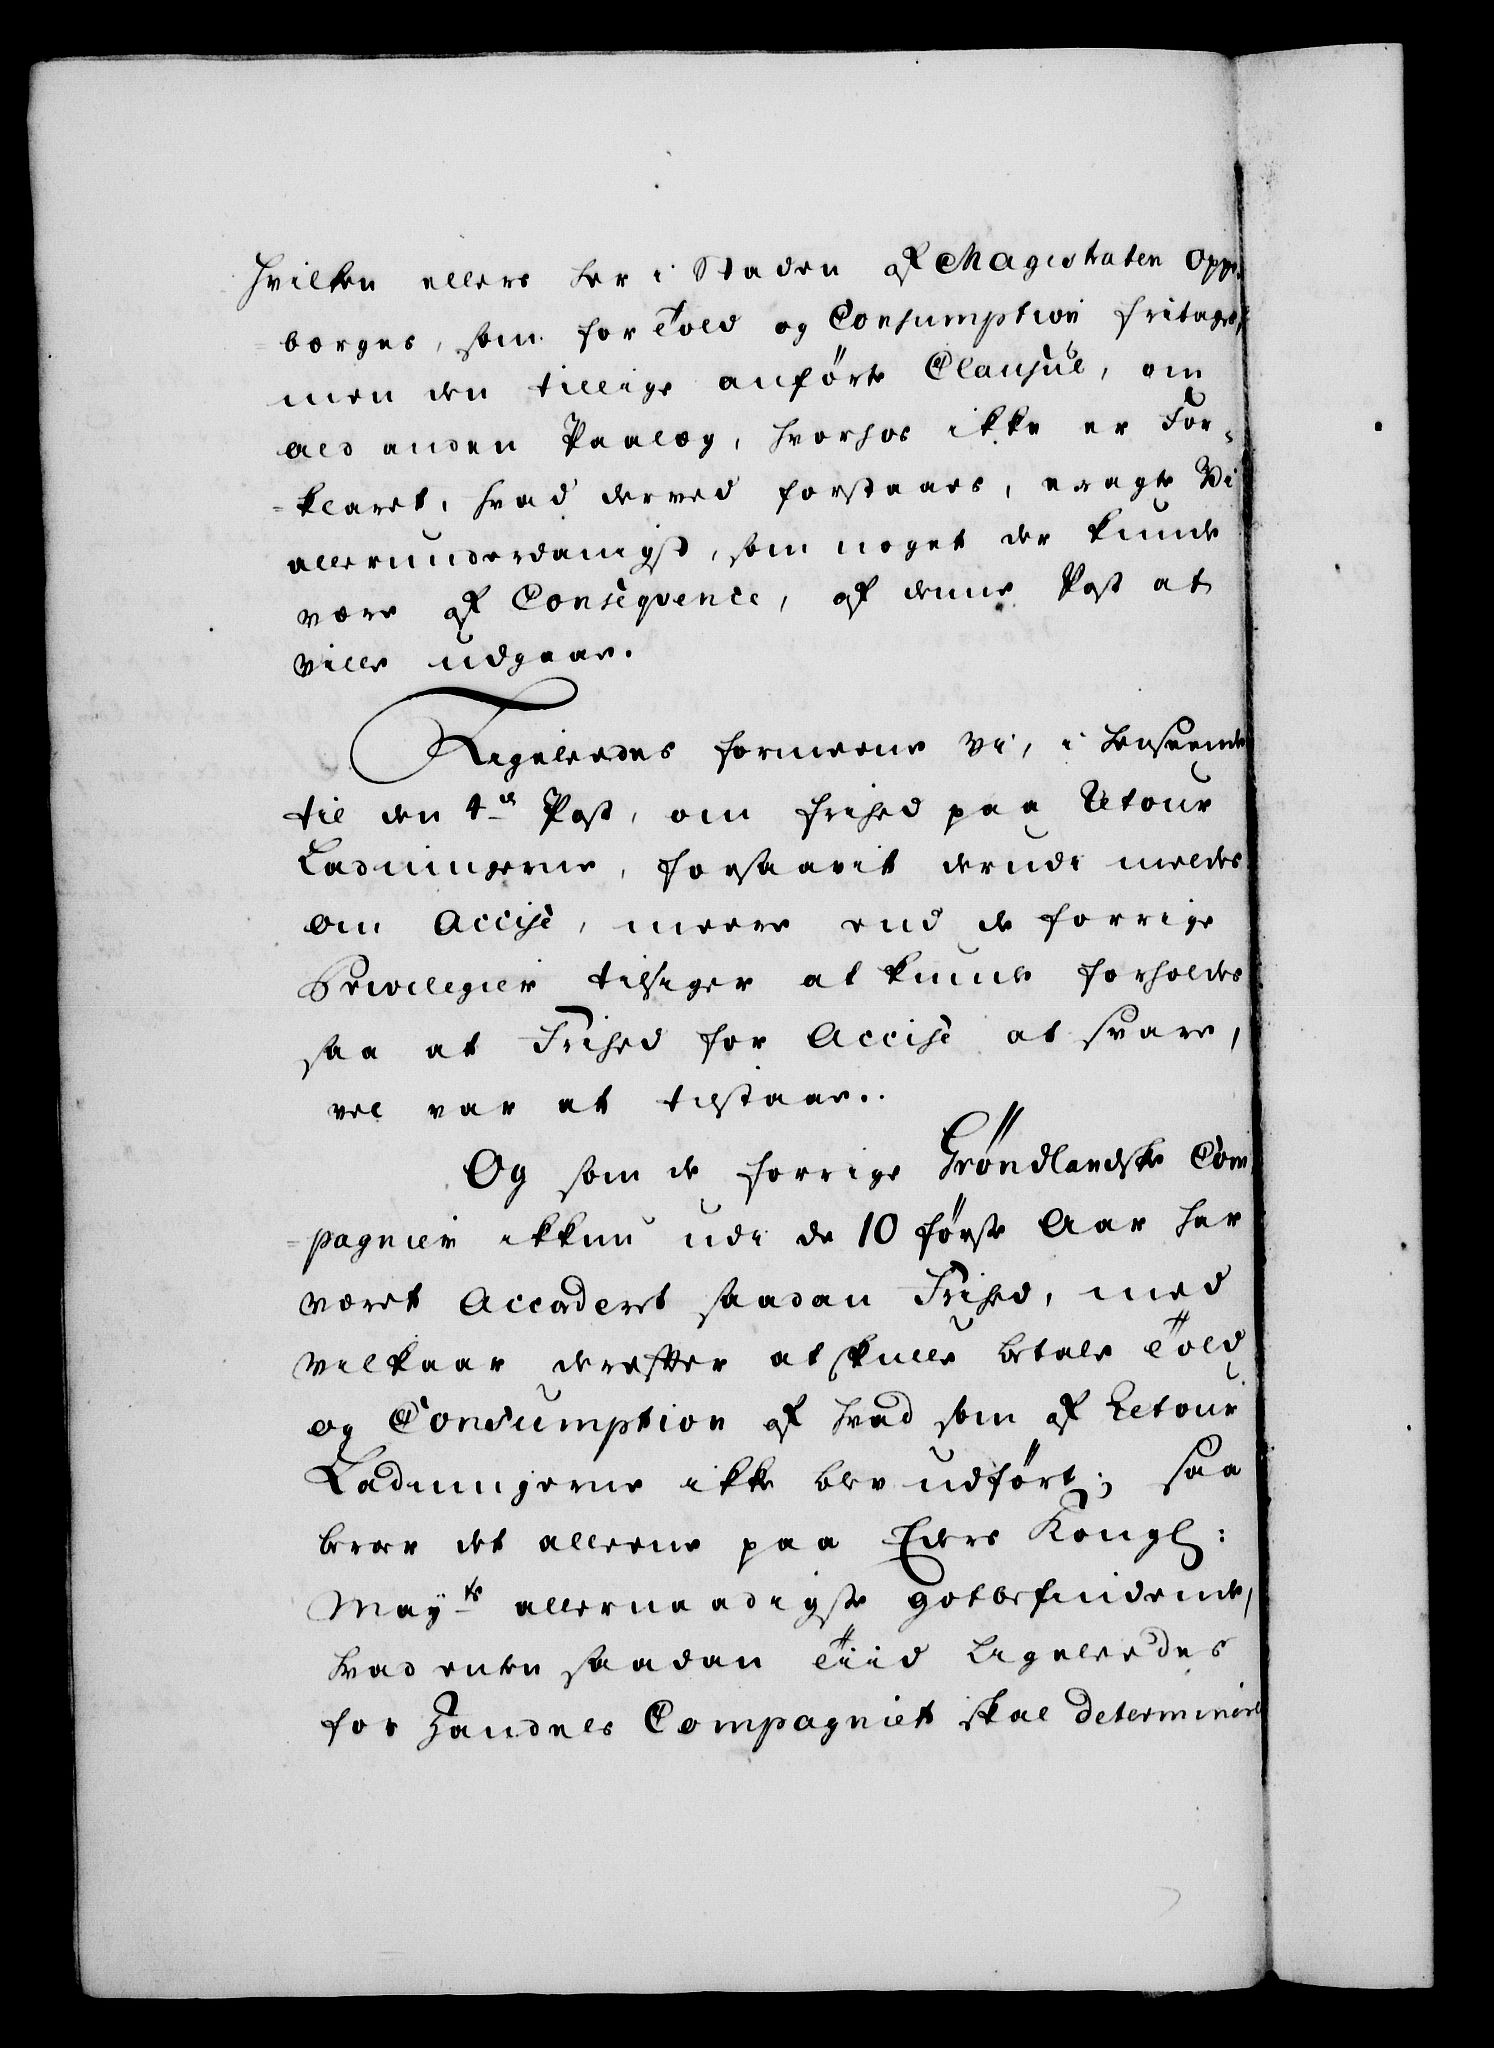 hvilken ellers her i Staden af Magistraten oppe¬
børges, som for Told og Consumption fritages,
men den tillige anførte Clausul, om
ald anden Paalæg, hvorhos ikke er For¬
klaret, hvad derved forstaaes, eragte Vi
allerunderdanigst, som noget der kunde
være af Conseqvence, af denne Post at
ville udgaae.
Ligeleedes formeene Vi, i henseende
til den 4de Post, om friehed paa Retour
Ladningerne, forsaavit derudi meldes
om Accise, meere end de forrige
Privilegier tilsiger at kunde forholdes
saa at Frihed for Accise at svare,
vel var at tilstaae.
Og som de forrige Grøndlandske Com
pagnier ikkun udi de 10 første Aar har
været Accorderet saadan Frihed, med
vilkaar derefter at skulle betale Told
og Consumption af hvad som af Retour
Ladningerne ikke blev udført; saa
beroer det alleene paa Eders Kongl:
Mayts allernaadigste gotbefindende,
hvad enten saadan Tiid ligeleedes
for Handels Compagniet skal determineres